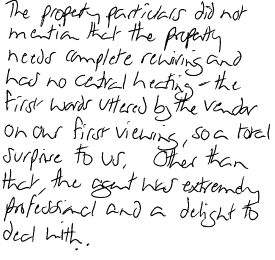 The property particulars did not
mention that the property
needs complete rewiring and
has no central heating - the
first words uttered by the vendor
on our first viewing, so a total
surprise to us. Other than
that, the agent was extremely
professional and a delight to
deal with.